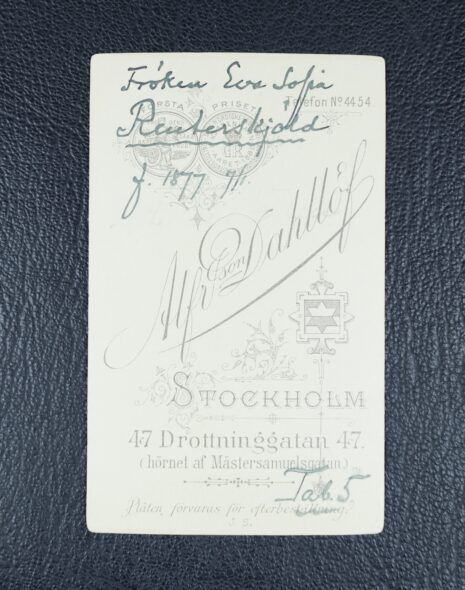 Fröken Eva Sofia
FÖRSTA PRISET
Telefon Nº 4454.
Reuterskjöld
f. 1877 7/1.
Alfr. Eson Dahllöf
STOCKHOLM
47 Drottninggatan 47.
(hörnet af Mästersamuelsgatan)
Tab. 5
Plåten förvaras för efterbeställning.